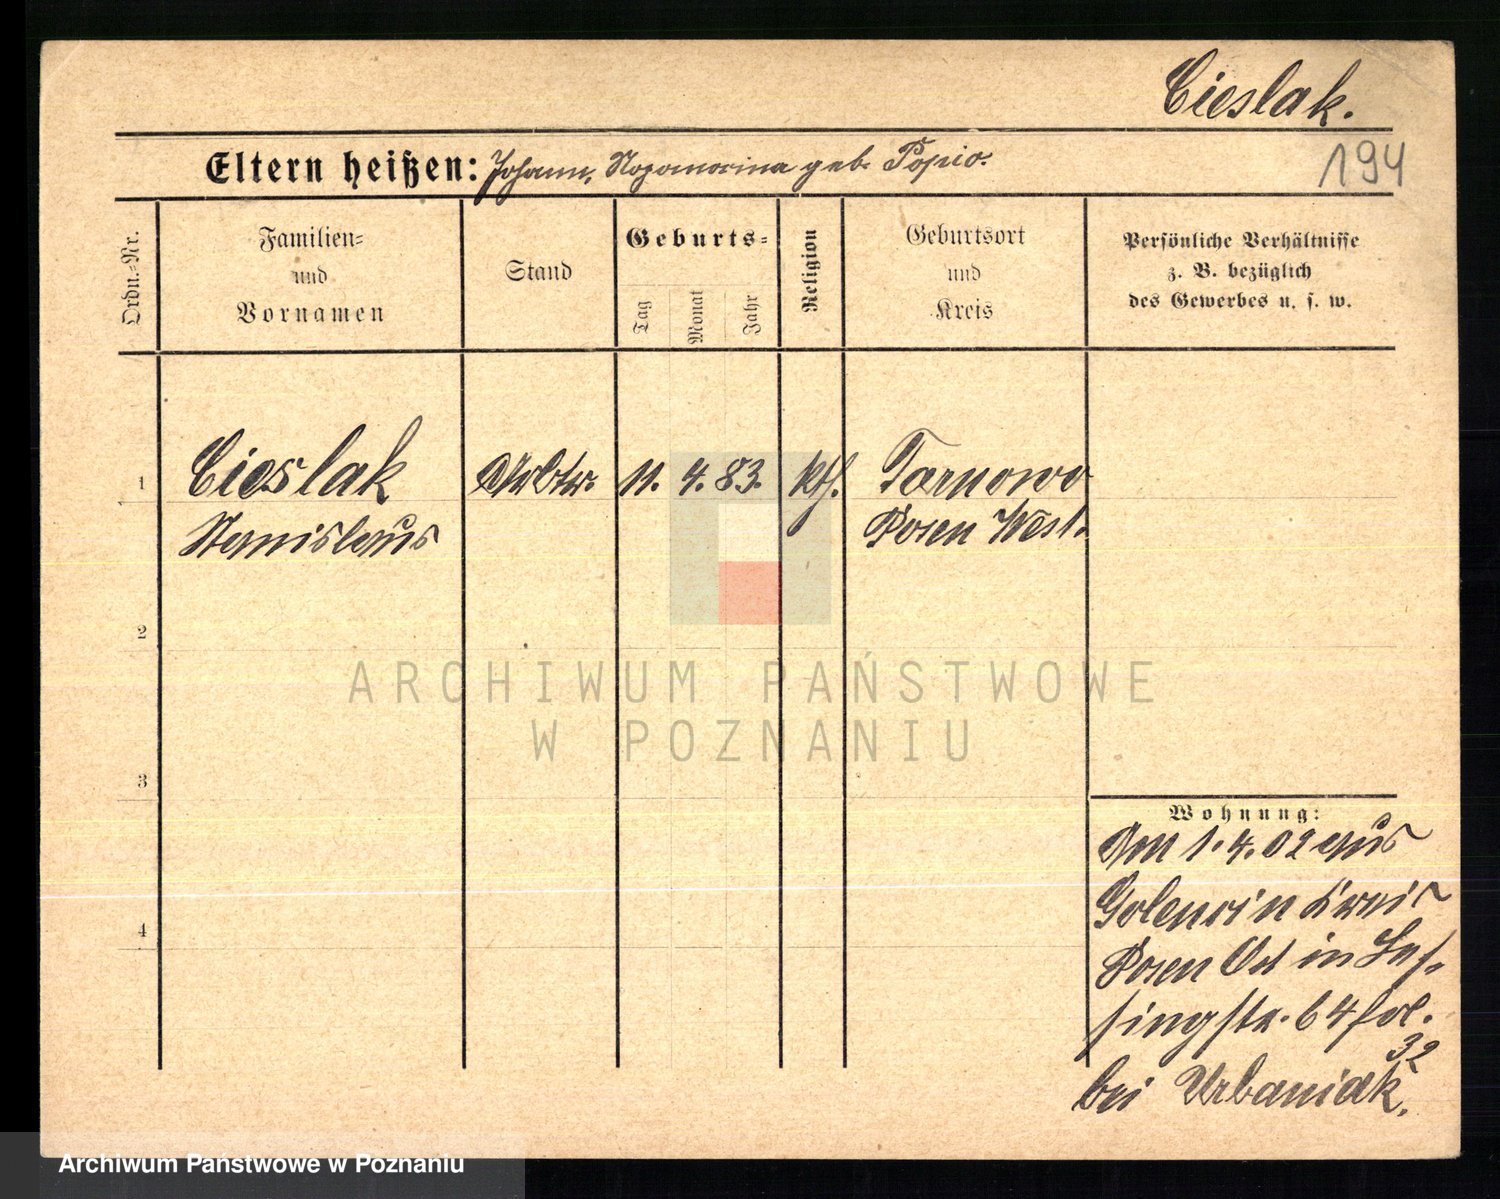 Cieslak.
194
Eltern heißen: Johann, Nepomocina geb. Popio.
Ordn.-Nr.
Familien-
und
Vornamen
Stand
Geburts-
Tag
Monat
Jahr
Religion
Geburtsort
und
Kreis
Persönliche Verhältnisse
z. B. bezüglich
des Gewerbes u. s. w.
1
Cieslak
Stanislaus
Arbtr.
11. 4. 83.
kth.
Tarnowo
Posen West.
2
ARCHIWUM PAŃSTWOWE
W POZNANIU
3
4
Wohnung:
Am 1. 4. 02 aus
Golencin Kreis
Posen Ost in Les-
singstr. 64 fol.
32
bei Urbaniak.
Archiwum Państwowe w Poznaniu